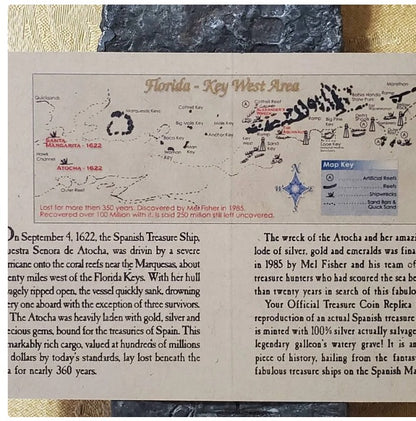 Florida - Key West Area
Quicksands
Marquesas Keys
Cottrell Key
Big Mullet Key
Mule Key
Boca Key
Man Key
Anchor Key
Woman Key
Sand Key
Key West
Big Pine Key
Looe Key
Bahia Honda State Park
Marathon
SANTA MARGARITA - 1622
Hawk Channel
ATOCHA - 1622
Outer Reef
Map Key
Artificial Reefs
Reefs
Shipwrecks
Sand Bars & Quick Sand
Lost for more then 350 years. Discovered by Mel Fisher in 1985.
Recovered over 100 Million with it. Is said 250 million still left uncovered.
On September 4, 1622, the Spanish Treasure Ship,
uestra Senora de Atocha, was drivin by a severe
rricane onto the coral reefs near the Marquesas, about
enty miles west of the Florida Keys. With her hull
ugely ripped open, the vessel quickly sank, drowning
ery one aboard with the exception of three survivors.
The Atocha was heavily laden with gold, silver and
ecious gems, bound for the treasuries of Spain. This
markably rich cargo, valued at hundreds of millions
dollars by today's standards, lay lost beneath the
a for nearly 360 years.
The wreck of the Atocha and her amazi
lode of silver, gold and emeralds was fina
in 1985 by Mel Fisher and his team of
treasure hunters who had scoured the sea be
than twenty years in search of this fabulo
Your Official Treasure Coin Replica
reproduction of an actual Spanish treasure
is minted with 100% silver actually salvage
legendary galleon's watery grave! It is an
piece of history, hailing from the fantas
fabulous treasure ships on the Spanish Ma